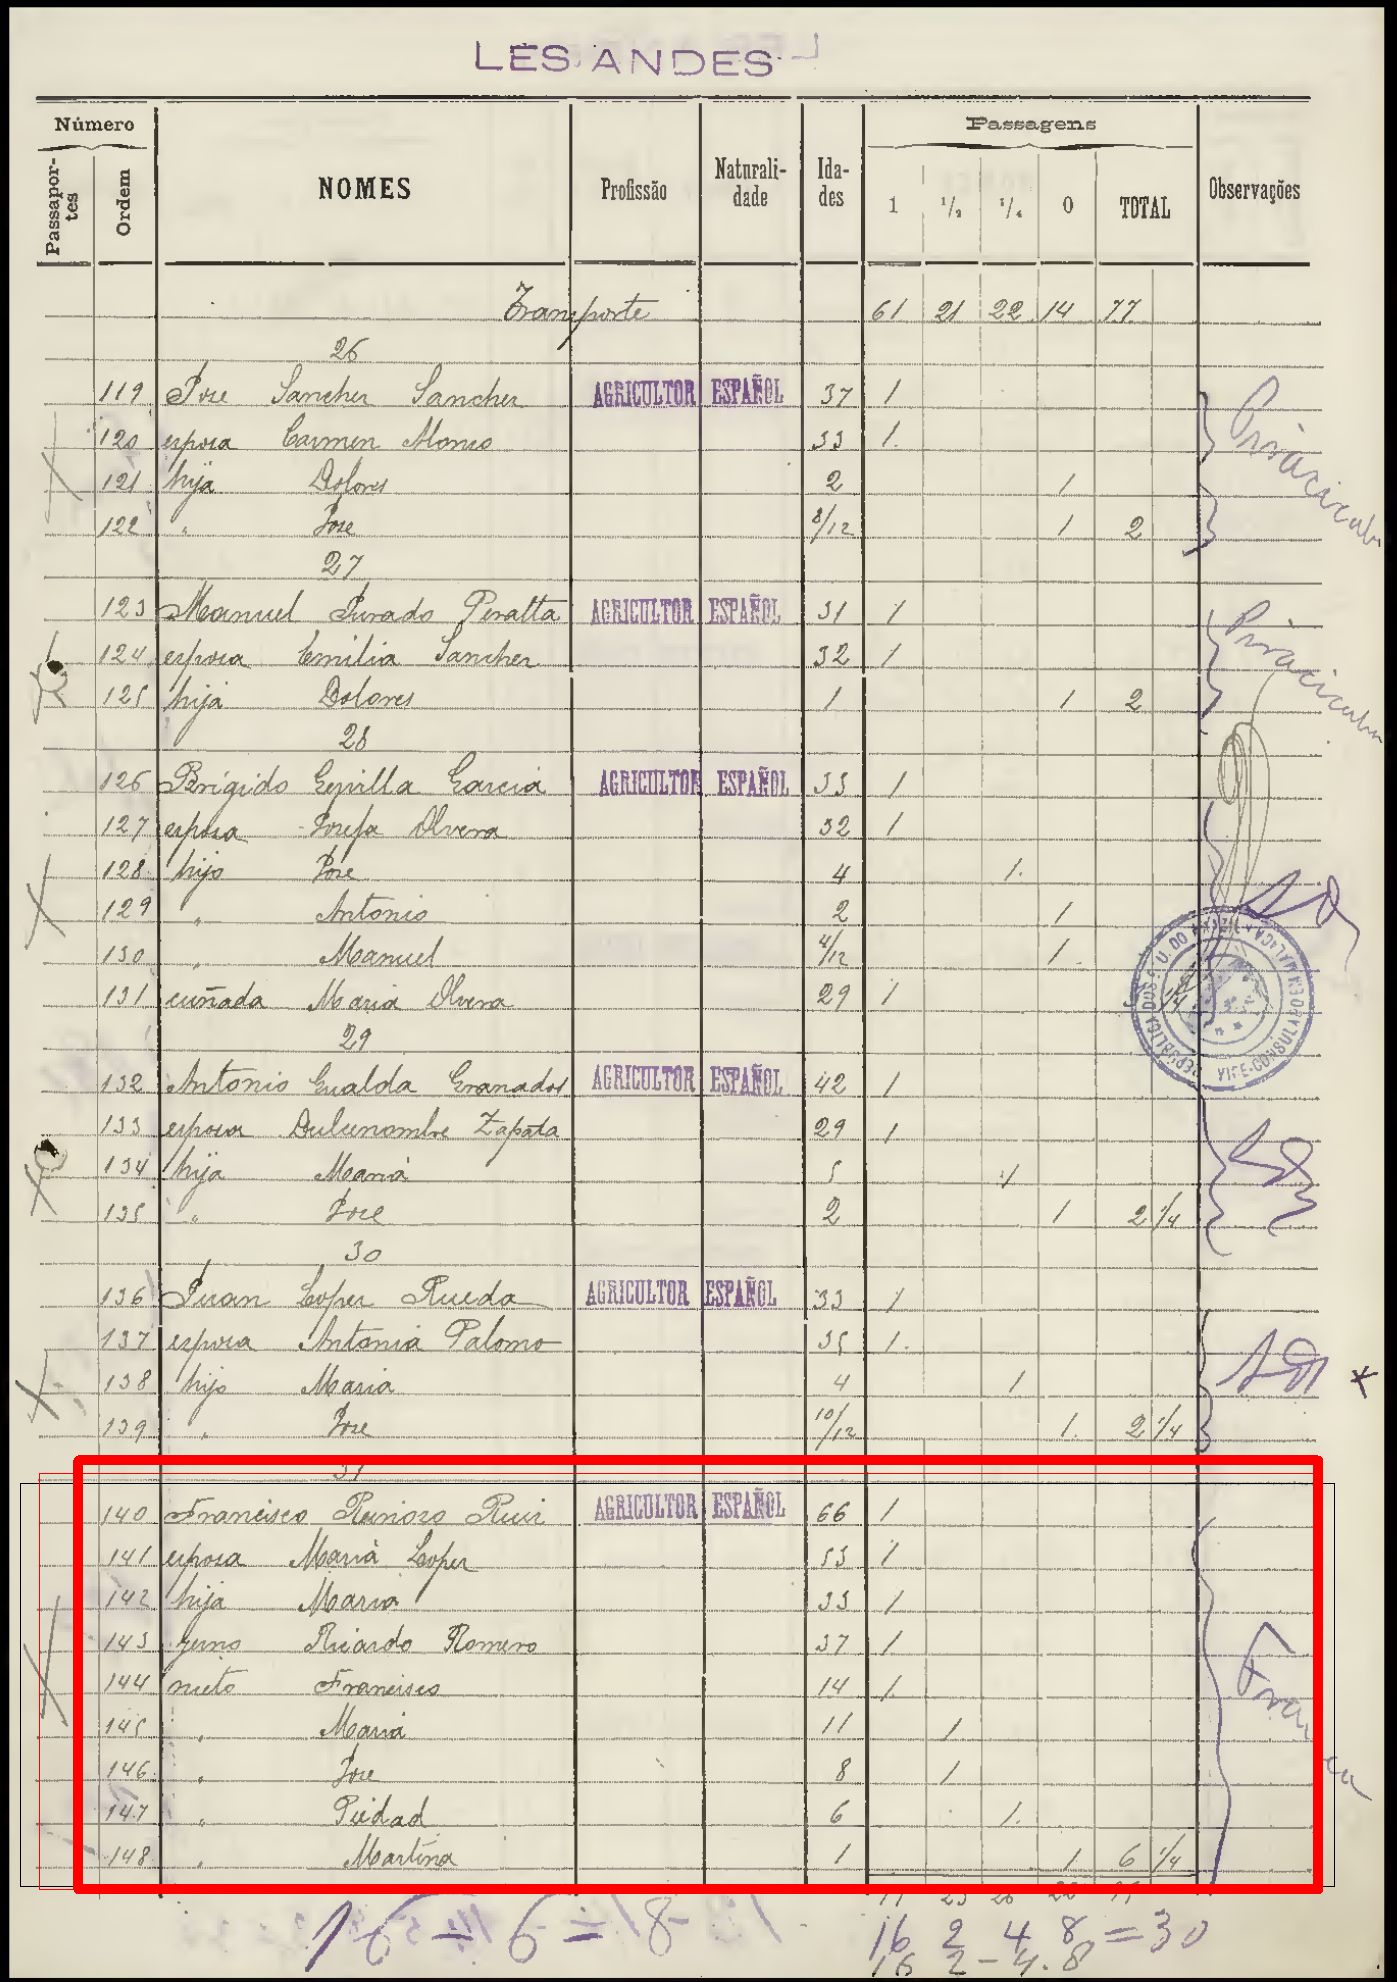 LES ANDES
Número Passagens
Passapor-tes Ordem NOMES Profissão Naturali-dade Ida-des 1 1/2 1/4 0 TOTAL Observações
Transporte 61 21 22 14 77
26
119 Jose Sanchez Sanchez AGRICULTOR ESPAÑOL 37 1
120 esposa Carmen Alonso 33 1
121 hija Dolores 2 1
122 " Jose 8/12 1 2
27
123 Manuel Jurado Peralta AGRICULTOR ESPAÑOL 31 1
124 esposa Emilia Sanchez 32 1
125 hija Dolores 1 1 2
28
126 Brigido Garcia AGRICULTOR ESPAÑOL 33 1
127 esposa Josefa Olvera 32 1
128 hijo Jose 4 1
129 " Antonio 2 1
130 " Manuel 4/12 1
131 cuñada Maria Olvera 29 1
29
132 Antonio Gualda Granados AGRICULTOR ESPAÑOL 42 1
133 esposa Dulcenombre Zapata 29 1
134 hija Maria 5 1
135 " Jose 2 1 2 1/4
30
136 Juan Lopez Rueda AGRICULTOR ESPAÑOL 33 1
137 esposa Antonia Palomo 35 1
138 hijo Maria 4 1
139 " Jose 10/12 1 2 1/4
31
140 Francisco Reinoso Ruiz AGRICULTOR ESPAÑOL 66 1
141 esposa Maria Lopez 53 1
142 hija Maria 33 1
143 yerno Ricardo Romero 37 1
144 nieto Francisco 14 1
145 " Maria 11 1
146 " Jose 8 1
147 " Piedad 6 1
148 " Martina 1 1 6 1/4
Franca
16 2 4 8 = 30
16 2 - 4. 8